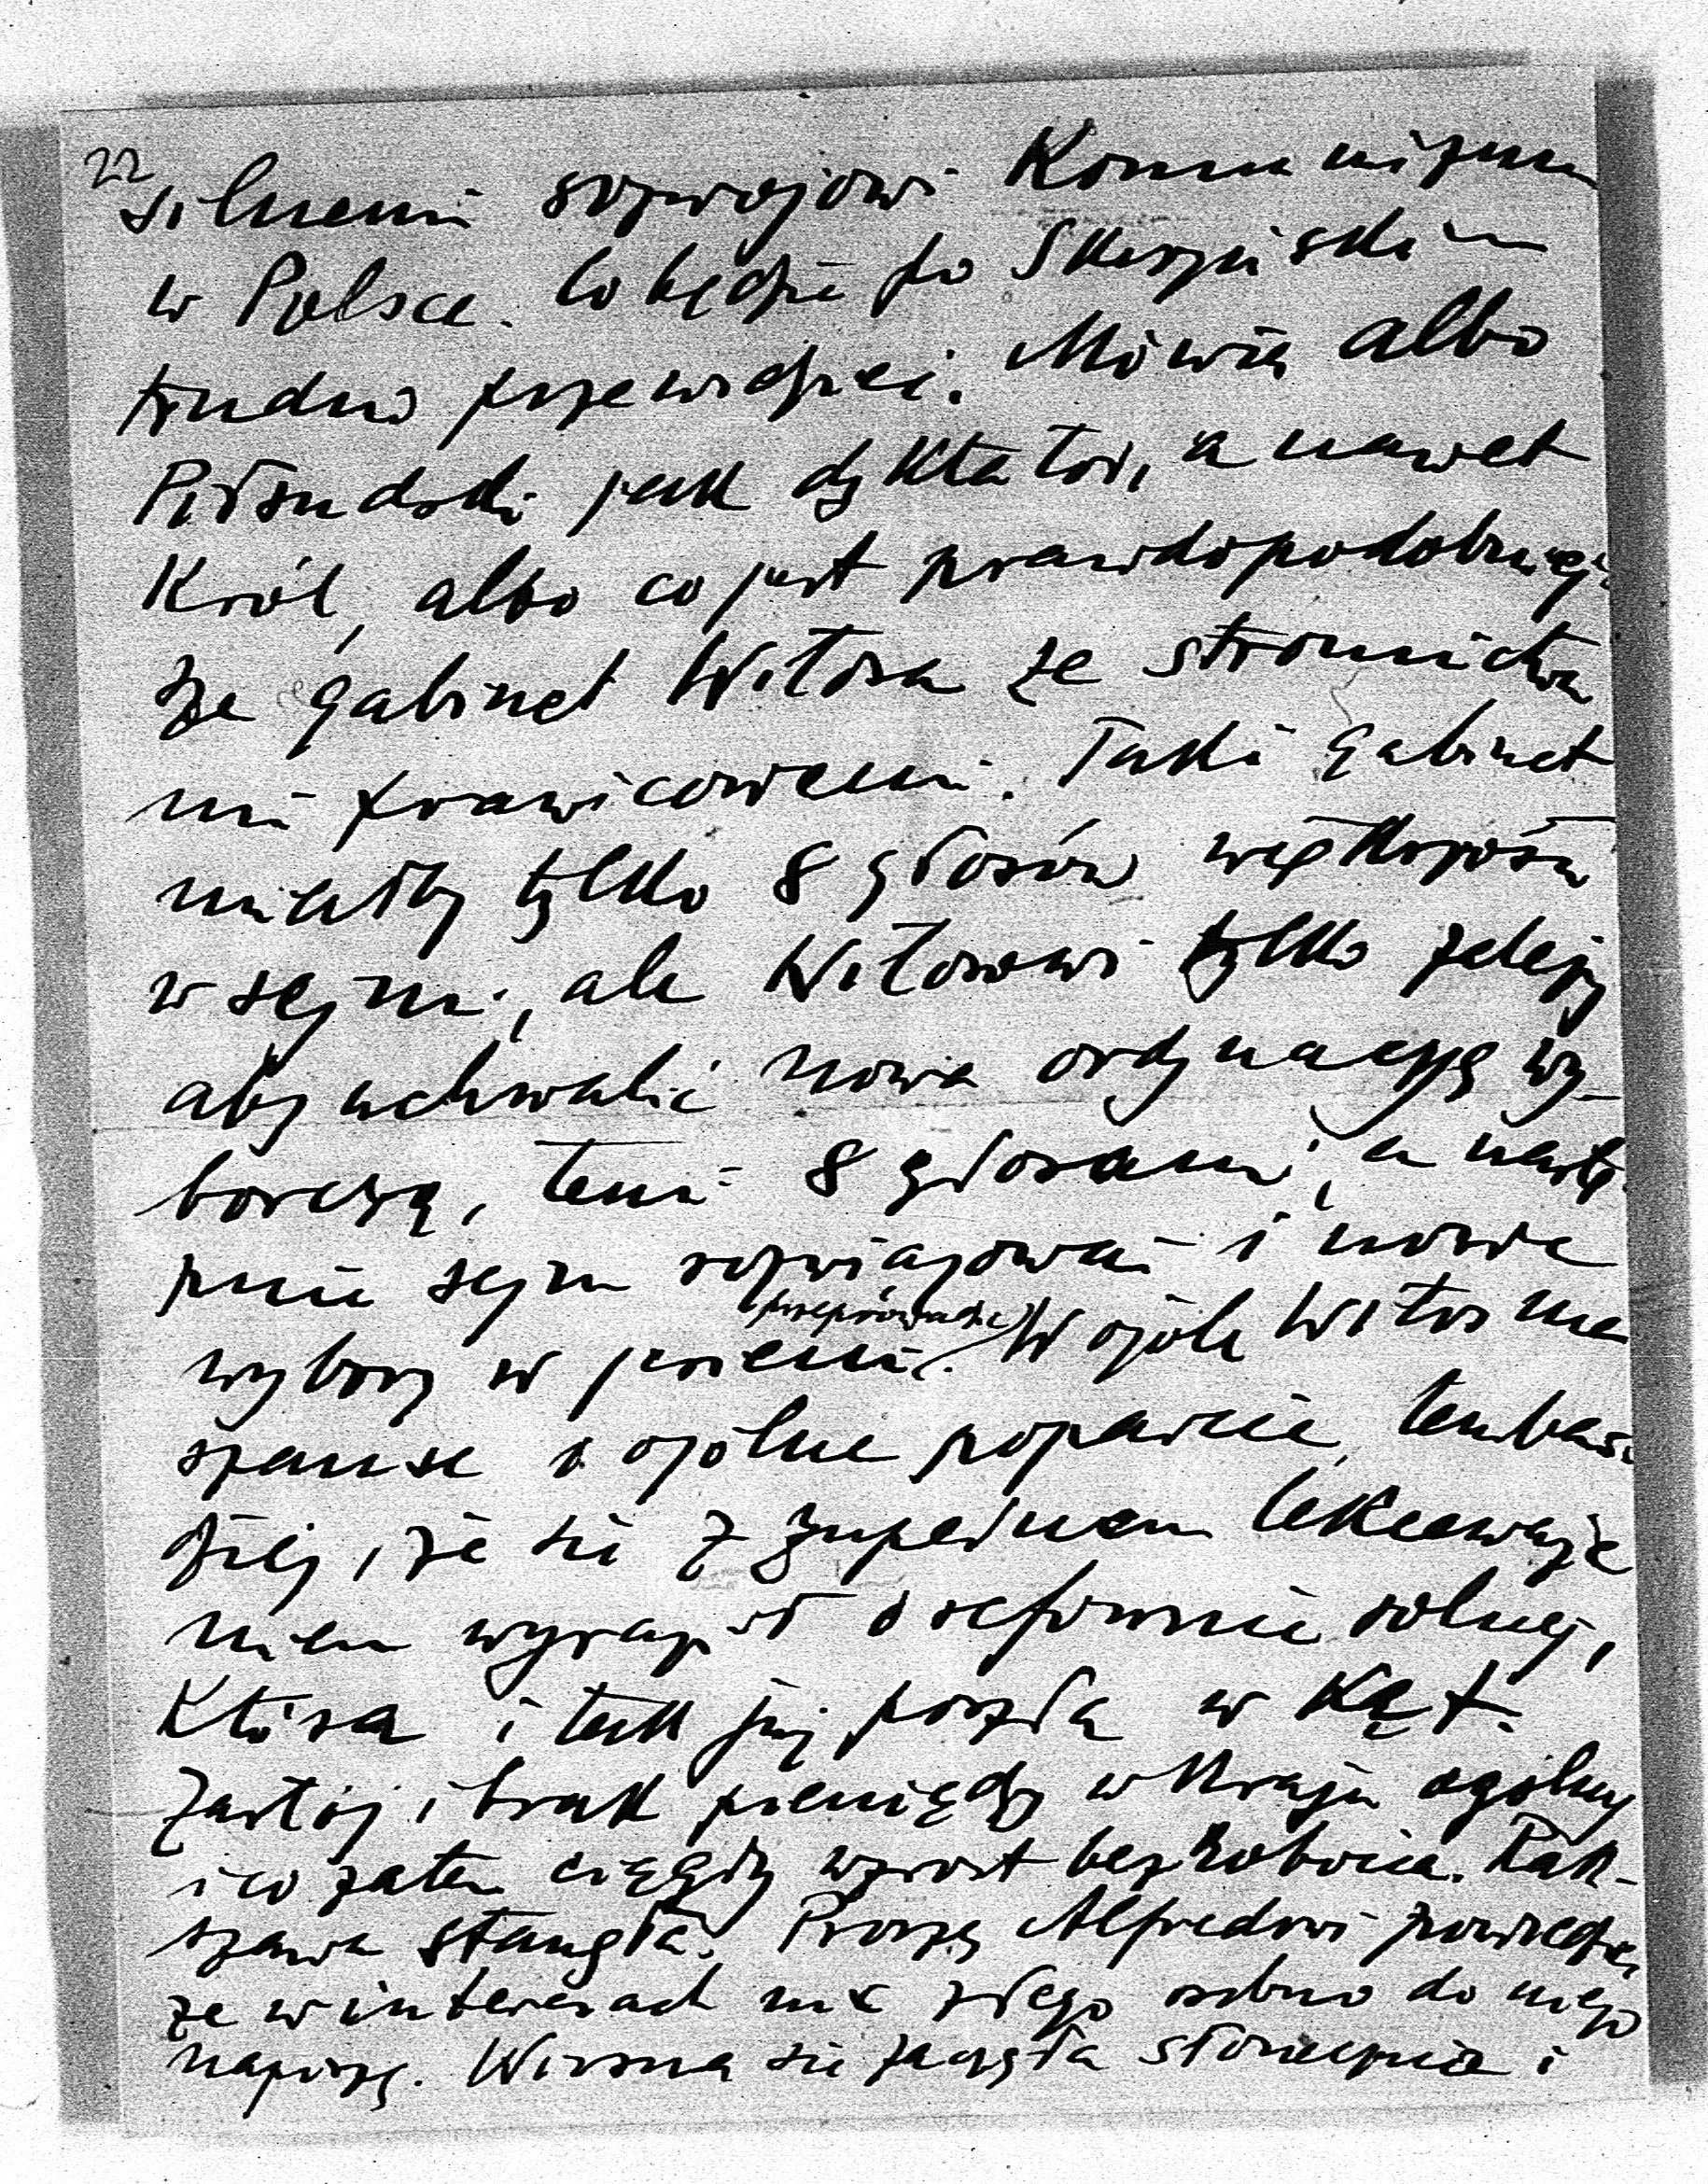 22
silnemu rozwojowi Komunizmu
w Polsce. Co będzie po Skrzyńskim
trudno przewidzieć. Mówią albo
Piłsudski jak dyktator, a nawet
Król, albo co jest prawdopodobniej-
sze gabinet Witosa ze stronnictwa
mi prawicowemi. Taki gabinet
miałby tylko 8 głosów większości
w sejmie, ale Witosowi tylko zależy
aby uchwalić nowa ordynacyę wy-
borczą, temi 8 głosami, a nastę-
pnie sejm rozwiązować i nowe
przeprowadzić
wybory w jesieni. W ogóle Witos ma
szanse i ogólne poparcie, tembar-
dziej, że się z zupełnem lekceważe
niem wyraził o reformie rolnej,
Która i tak już poszła w Kąt.
Zastój i brak pieniędzy w Kraju ogólny
i co zatem ciągły wzrost bezrobocia. Rak-
szawa stanęła. Proszę Alfredowi powiedzieć
ze w interesach nic złego osobno do niego
napiszę. Wiosna się zaczęła słoneczna i